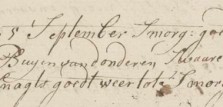 5 September Smorg: goe
Buyen van donderen Swaare
snagts goedt weer tot 2 Smor